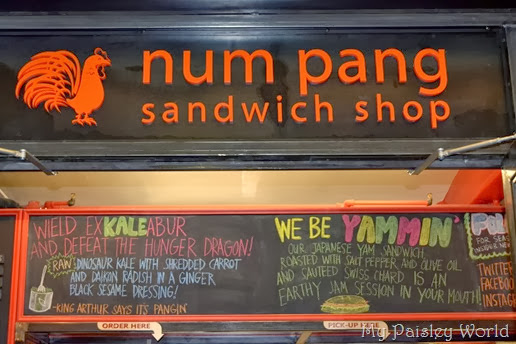 num pang
sandwich shop
WIELD EXKALEABUR
AND DEFEAT THE HUNGER DRAGON!
RAW DINOSAUR KALE WITH SHREDDED CARROT
AND DAIKON RADISH IN A GINGER
BLACK SESAME DRESSING!
-KING ARTHUR SAYS IT'S PANGIN'
WE BE YAMMIN'
OUR JAPANESE YAM SANDWICH,
ROASTED WITH SALT PEPPER AND OLIVE OIL
AND SAUTEED SWISS CHARD IS AN
EARTHY JAM SESSION IN YOUR MOUTH!
FOR SEA
TWITTER
FACEBO
INSTAG
ORDER HERE
PICK-UP HERE
My Paisley World